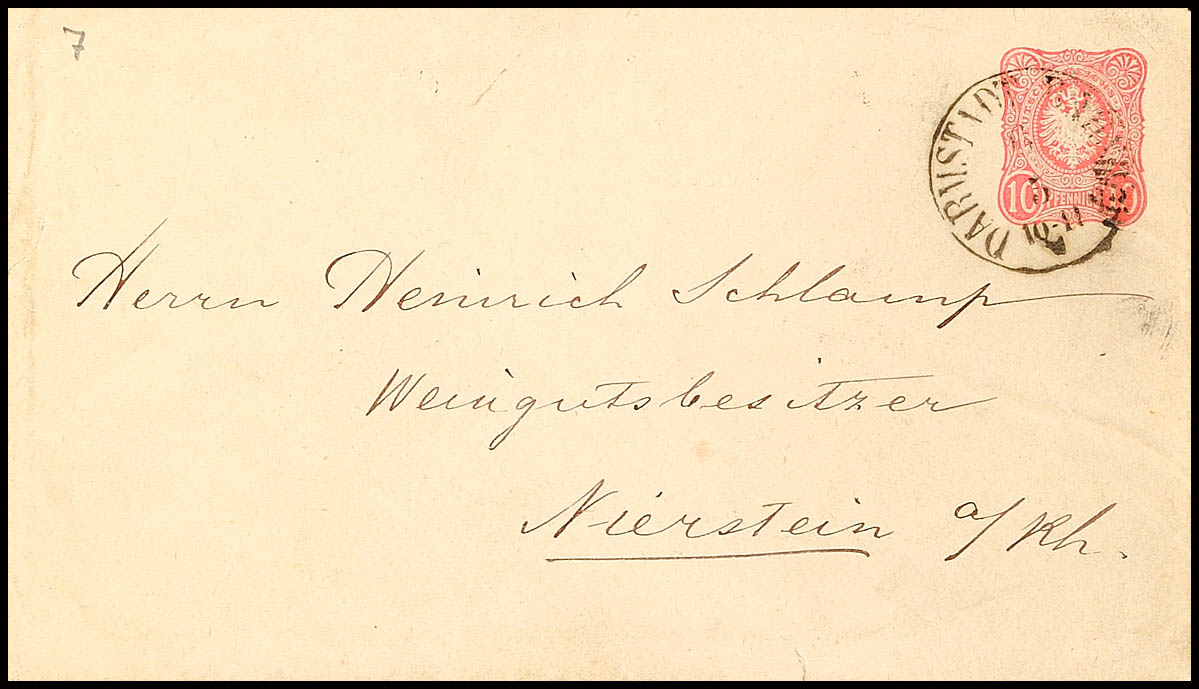 7
DARMSTADT
10 PFENNIG 10
5
10-11
Herrn Heinrich Schlamp
Weingutsbesitzer
Nierstein a/Rh.